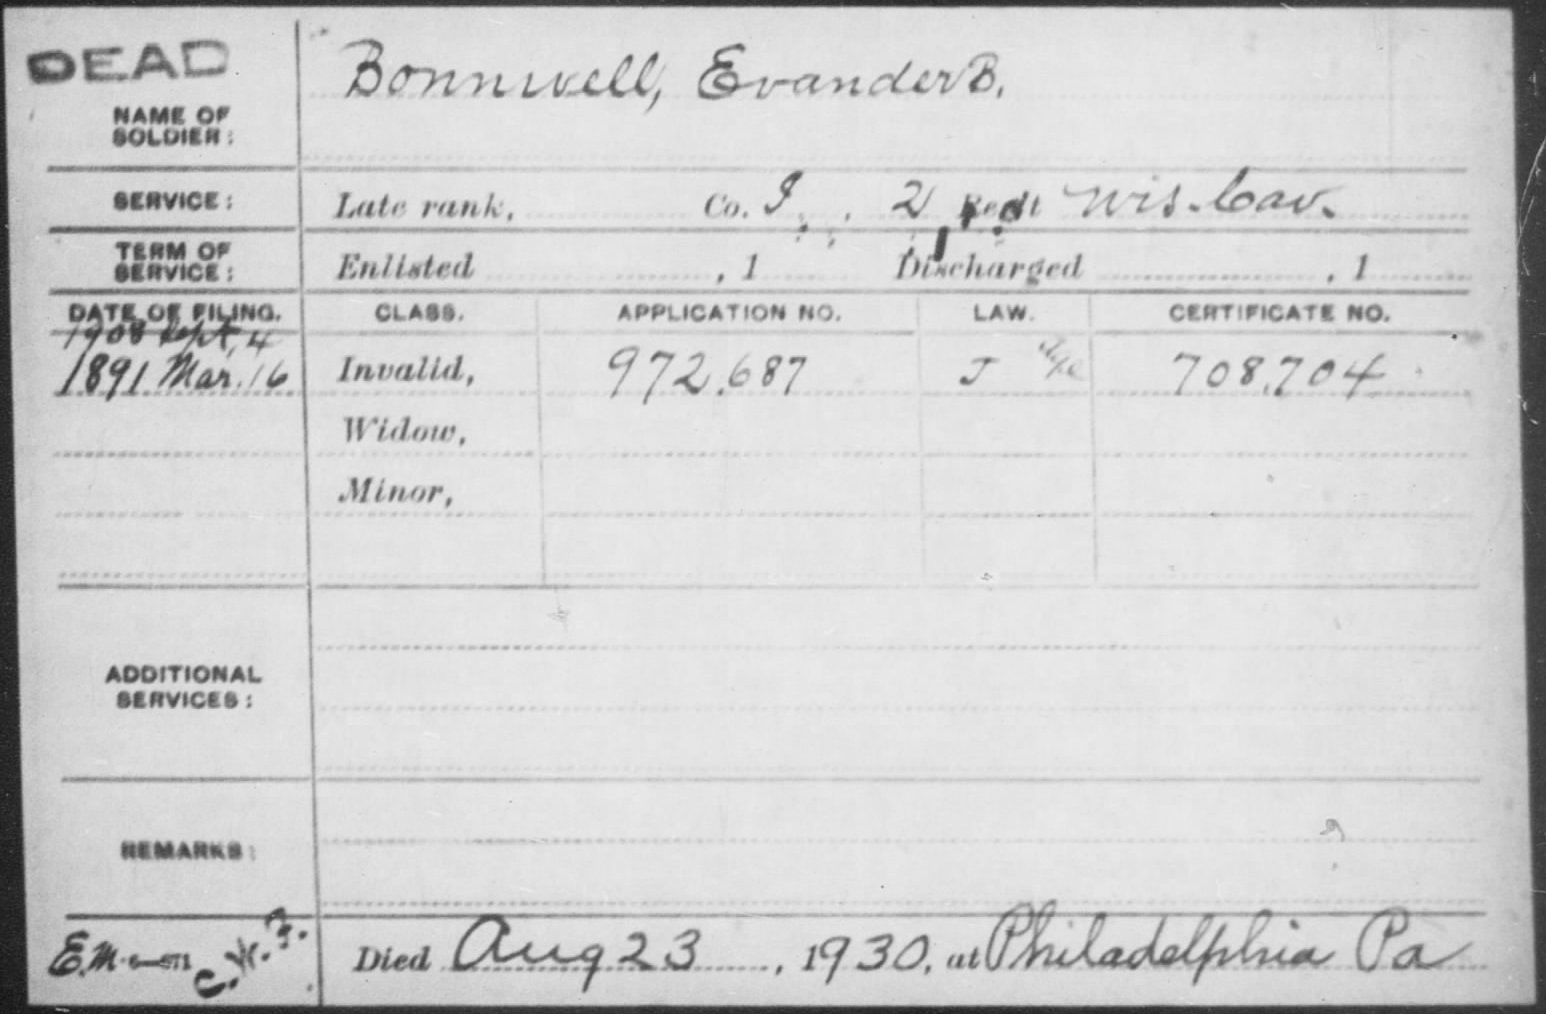 DEAD
NAME OF SOLDIER: Bonnwell, Evander B.
SERVICE: Late rank, Co. I, 2 Regt Wis. Cav.
TERM OF SERVICE: Enlisted , 1 Discharged , 1
DATE OF FILING. CLASS. APPLICATION NO. LAW. CERTIFICATE NO.
1908 Sept. 4
1891 Mar. 16 Invalid, 972.687 J 708.704
Widow,
Minor,
ADDITIONAL SERVICES:
REMARKS:
E.M. Died Aug 23, 1930, at Philadelphia Pa